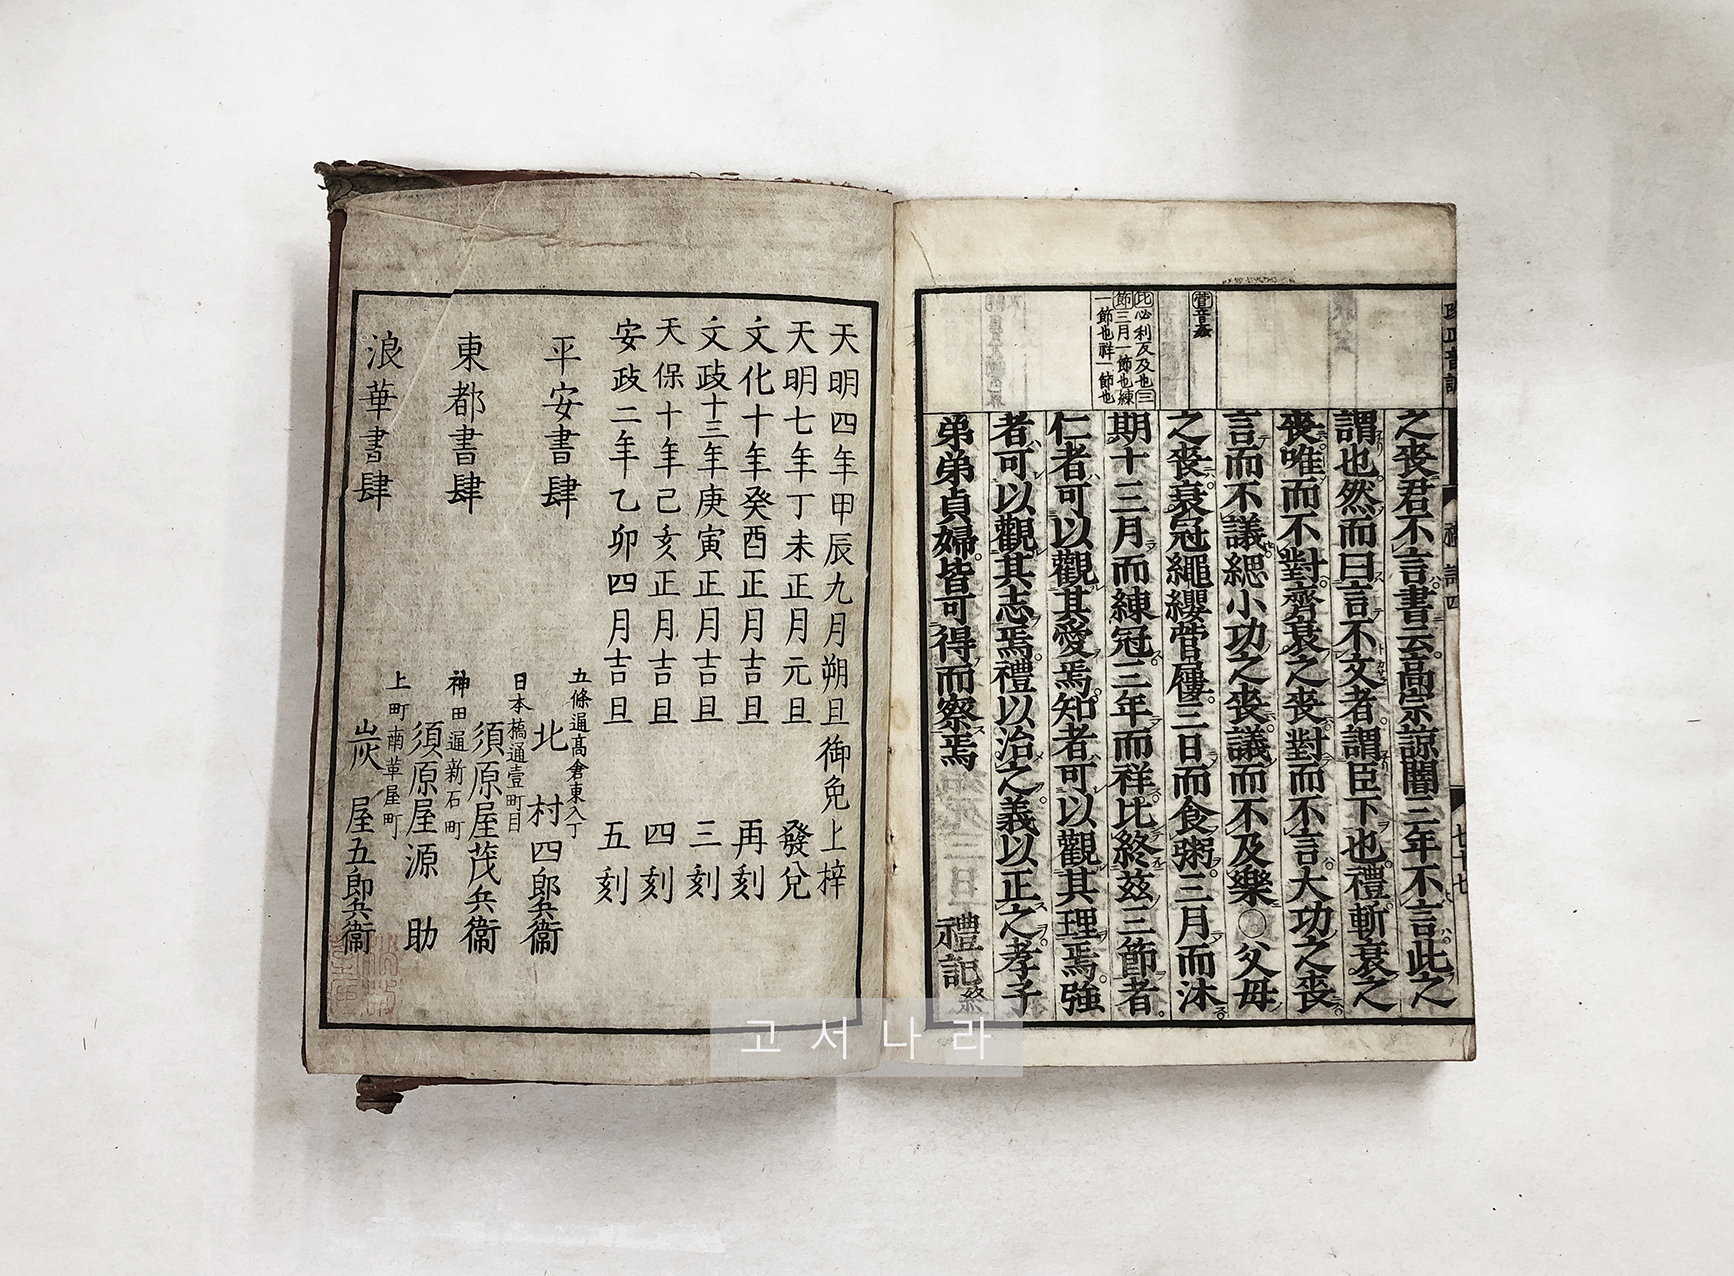 之喪君不言書云高宗諒闇三年不言此之
謂也然而曰言不文者謂臣下也禮斬衰之
喪唯而不對齊衰之喪對而不言大功之喪
言而不議緦小功之喪議而不及樂○父母
之喪衰冠繩纓菅屨三日而食粥三月而沐
期十三月而練冠三年而祥比終茲三節者
仁者可以觀其愛焉知者可以觀其理焉強
者可以觀其志焉禮以治之義以正之孝子
弟弟貞婦皆可得而察焉
禮記終
菅音姦
比必利反及也三
節三月一節也練
一節也祥一節也
禮記四
七十七
天明四年甲辰九月朔旦御免上梓
天明七年丁未正月元旦 發兌
文化十年癸酉正月吉旦 再刻
文政十三年庚寅正月吉旦 三刻
天保十年己亥正月吉旦 四刻
安政二年乙卯四月吉旦 五刻
平安書肆
五條通高倉東入丁
北村四郎兵衞
東都書肆
日本橋通壹町目
須原屋茂兵衞
神田通新石町
須原屋源助
浪華書肆
上町南革屋町
炭屋五郎兵衞
고서나라